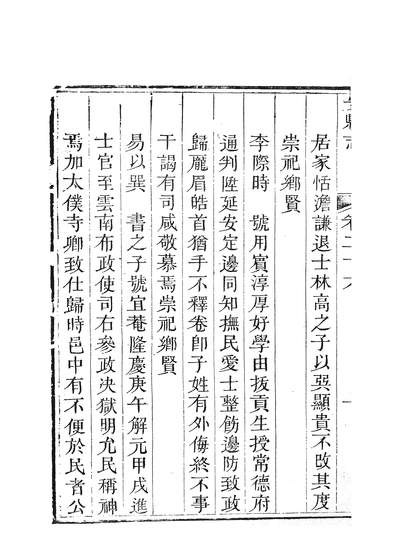 縣志
卷二十六
居家恬澹謙退士林高之子以巽顯貴不改其度
崇祀鄉賢
李際時　號用賓淳厚好學由拔貢生授常德府
通判陞延安定邊同知撫民愛士整飭邊防致政
歸龎眉皓首猶手不釋卷卽子姓有外侮終不事
干謁有司咸敬慕焉崇祀鄉賢
易以巽　書之子號宜菴隆慶庚午解元甲戌進
士官至雲南布政使司右參政决獄明允民稱神
焉加太僕寺卿致仕歸時邑中有不便於民者公